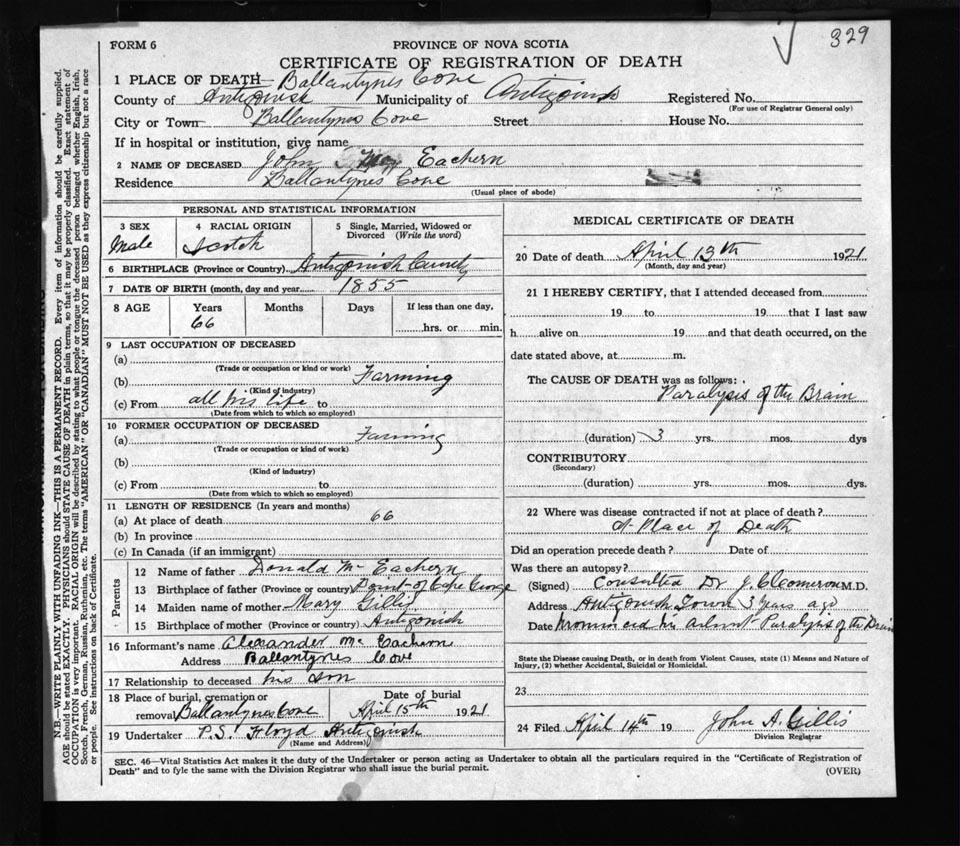 329
FORM 6
PROVINCE OF NOVA SCOTIA
CERTIFICATE OF REGISTRATION OF DEATH
1 PLACE OF DEATH— Ballantynes Cove
County of Antigonish Municipality of Antigonish Registered No.
(For use of Registrar General only)
City or Town Ballantynes Cove Street House No.
If in hospital or institution, give name
2 NAME OF DECEASED John Eachern
Residence Ballantynes Cove
(Usual place of abode)
PERSONAL AND STATISTICAL INFORMATION
3 SEX 4 RACIAL ORIGIN 5 Single, Married, Widowed or
Divorced (Write the word)
Male Scotch
6 BIRTHPLACE (Province or Country) Antigonish County
7 DATE OF BIRTH (month, day and year) 1855
8 AGE Years Months Days If less than one day,
66 hrs. or min.
9 LAST OCCUPATION OF DECEASED
(a)
(Trade or occupation or kind or work)
(b) Farming
(Kind of industry)
(c) From all his life to
(Date from which to which so employed)
10 FORMER OCCUPATION OF DECEASED
(a) Farming
(Trade or occupation or kind of work)
(b)
(Kind of industry)
(c) From to
(Date from which to which so employed)
11 LENGTH OF RESIDENCE (In years and months)
(a) At place of death 66
(b) In province
(c) In Canada (if an immigrant)
Parents
12 Name of father Donald Mc Eachern
13 Birthplace of father (Province or country) Point of Cape George
14 Maiden name of mother Mary Gillis
15 Birthplace of mother (Province or country) Antigonish
16 Informant's name Alexander Mc Eachern
Address Ballantynes Cove
17 Relationship to deceased his son
18 Place of burial, cremation or Date of burial
removal Ballantynes Cove April 15th 1921
19 Undertaker P.S. Floyd Antigonish
(Name and Address)
MEDICAL CERTIFICATE OF DEATH
20 Date of death April 13th 1921
(Month, day and year)
21 I HEREBY CERTIFY, that I attended deceased from
19 to 19 that I last saw
h alive on 19 and that death occurred, on the
date stated above, at m.
The CAUSE OF DEATH was as follows:
Paralysis of the Brain
(duration) 3 yrs. mos. dys
CONTRIBUTORY
(Secondary)
(duration) yrs. mos. dys.
22 Where was disease contracted if not at place of death?
At Place of Death
Did an operation precede death? Date of
Was there an autopsy?
(Signed) Consulted Dr J. M.D.
Address Antigonish Town 3 years ago
Date his Paralysis of the Brain
State the Disease causing Death, or in death from Violent Causes, state (1) Means and Nature of
Injury, (2) whether Accidental, Suicidal or Homicidal.
23
24 Filed April 14th 19 John A. Gillis
Division Registrar
SEC. 46—Vital Statistics Act makes it the duty of the Undertaker or person acting as Undertaker to obtain all the particulars required in the "Certificate of Registration of
Death" and to fyle the same with the Division Registrar who shall issue the burial permit.
(OVER)
N.B.—WRITE PLAINLY WITH UNFADING INK—THIS IS A PERMANENT RECORD. Every item of information should be carefully supplied.
AGE should be stated EXACTLY. PHYSICIANS should STATE CAUSE OF DEATH in plain terms, so that it may be properly classified. Exact statement of
OCCUPATION is very important. RACIAL ORIGIN will be described by stating to what people or tongue the deceased person belonged whether English, Irish,
Scotch, French, German, Russian, Ruthenian, etc. The terms "AMERICAN" OR "CANADIAN" MUST NOT BE USED as they express citizenship but not a race
or people. See instructions on back of Certificate.